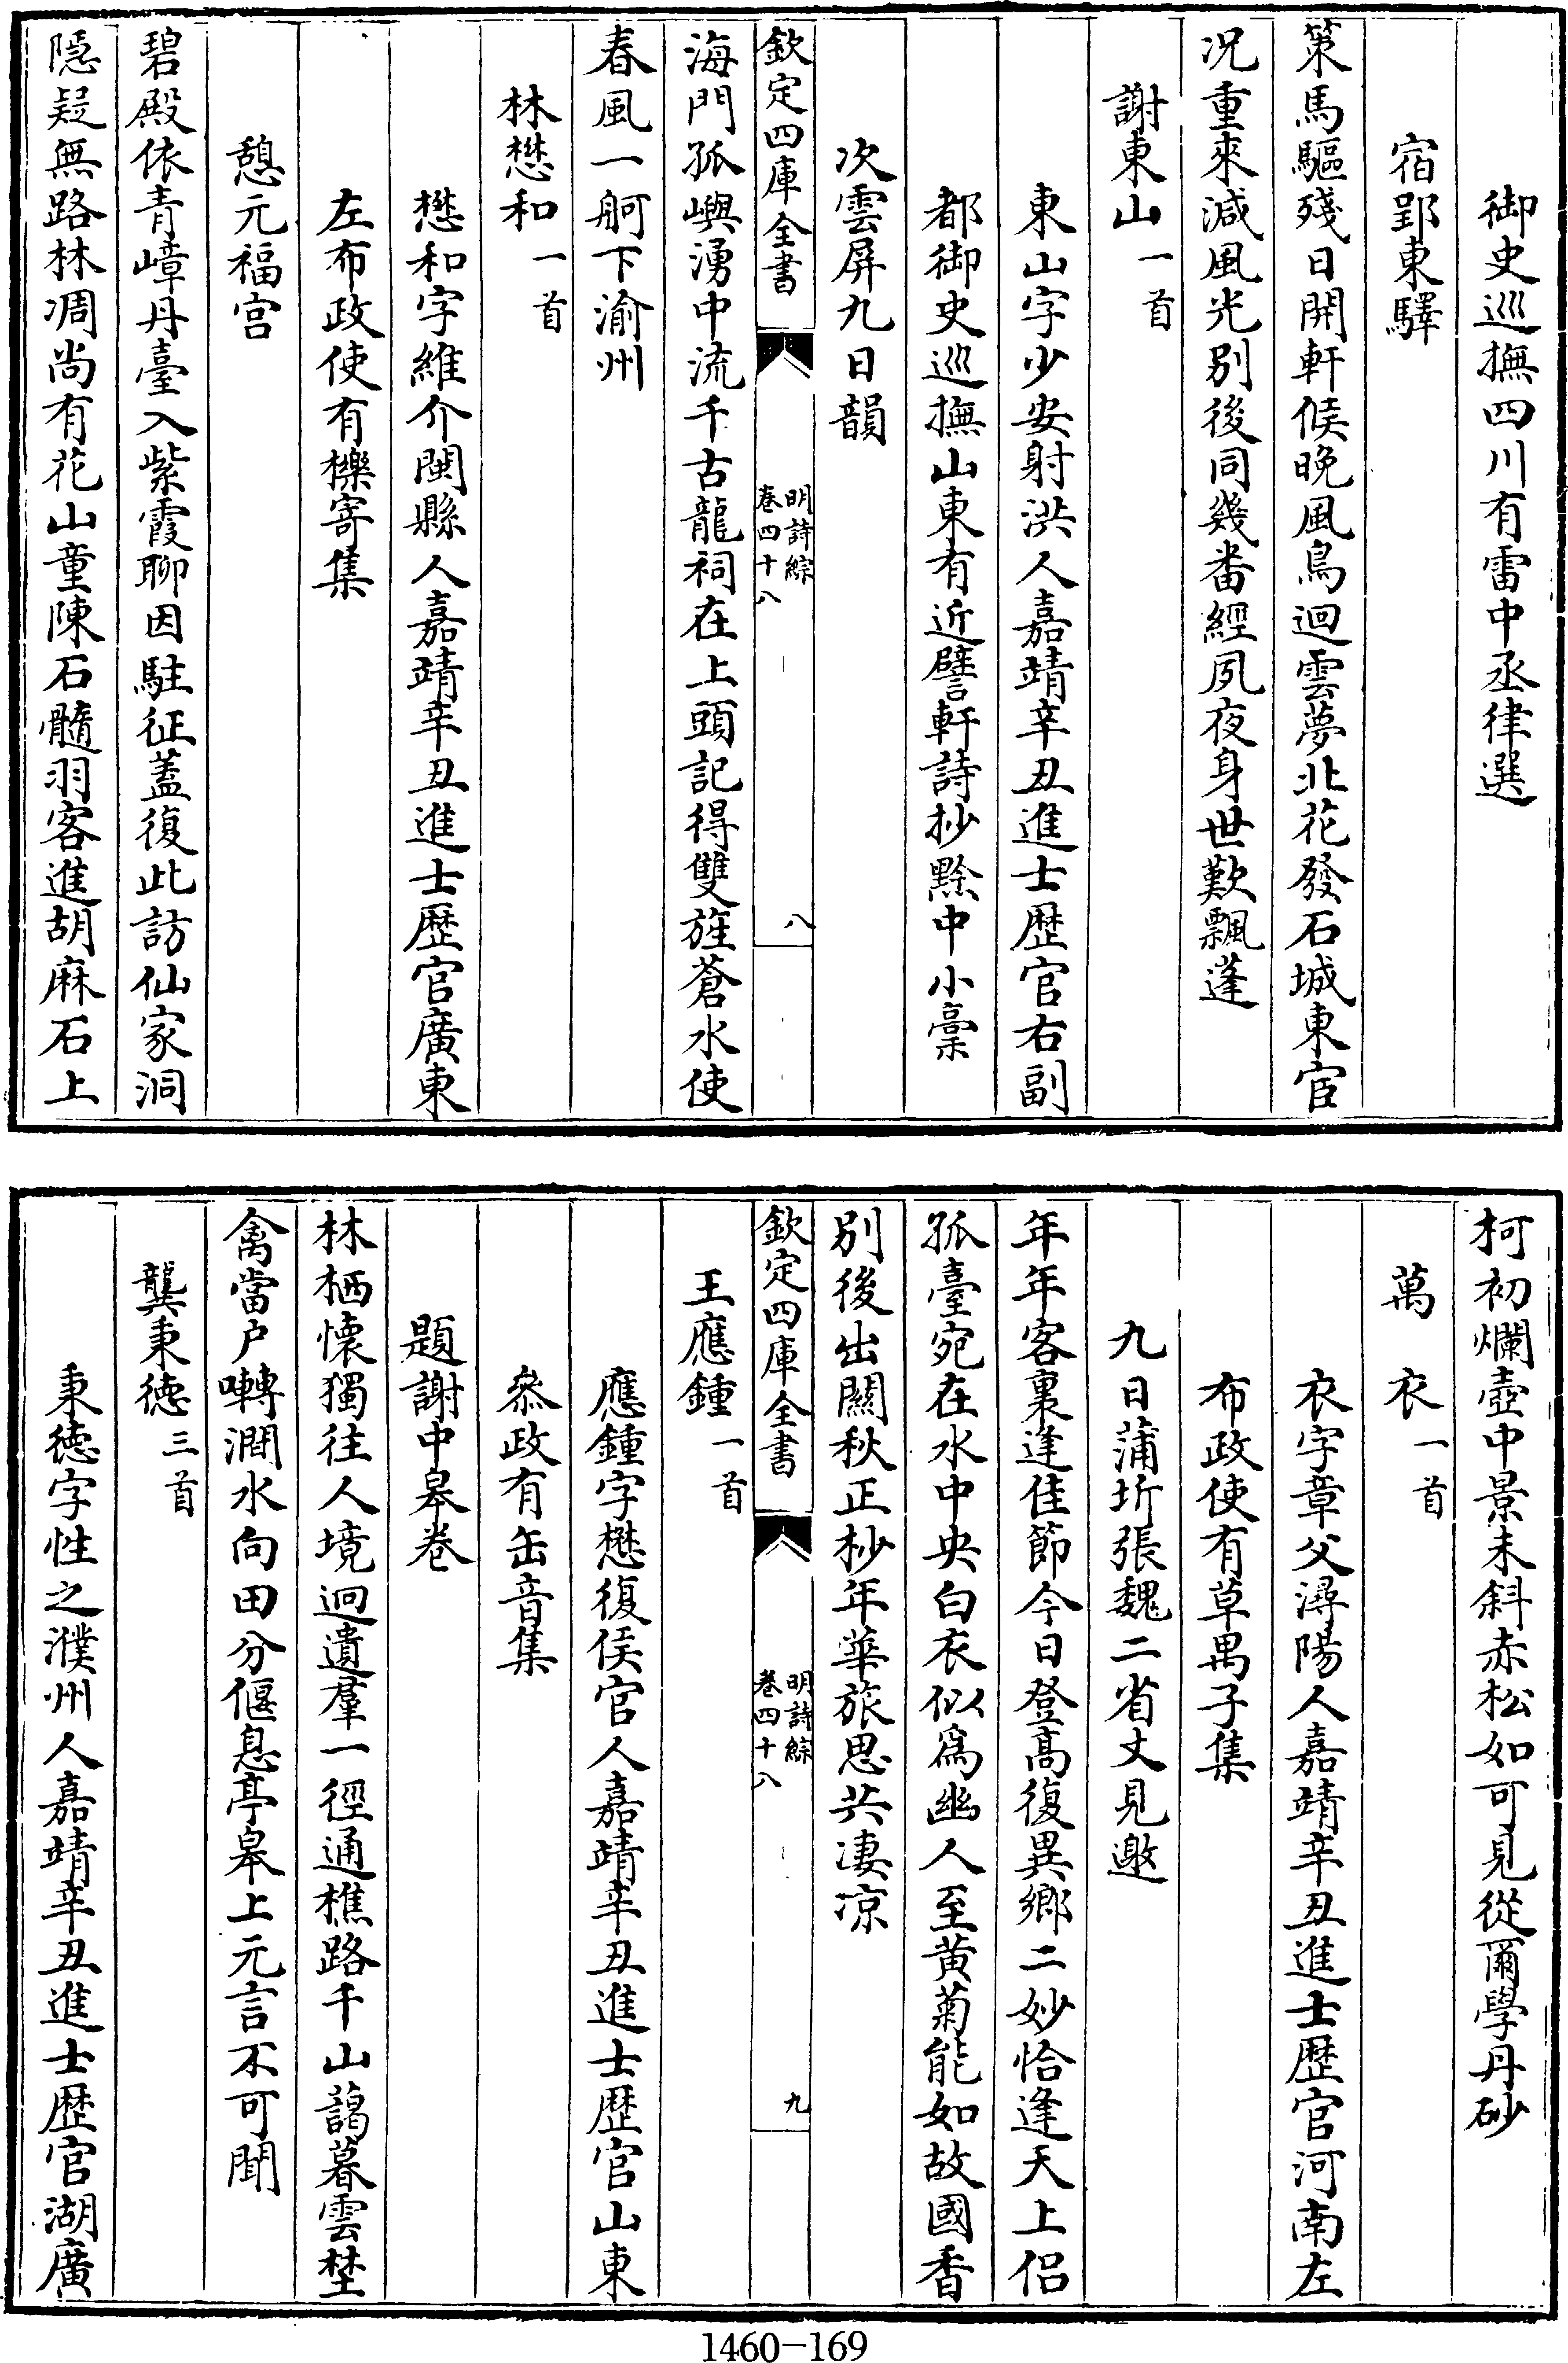 御史巡撫四川有雷中丞律選
宿郢東驛
策馬驅殘日開軒候晚風鳥迴雲夢北花發石城東宦
况重來減風光别後同幾畨經夙夜身世歎飄蓬
謝東山一首
東山字少安射洪人嘉靖辛丑進士歴官右副
都御史巡撫山東有近譬軒詩抄黔中小稾
次雲屏九日韻
欽定四庫全書 明詩綜 卷四十八 八
海門孤嶼湧中流千古龍祠在上頭記得雙旌蒼水使
春風一舸下渝州
林懋和一首
懋和字維介閩縣人嘉靖辛丑進士歴官廣東
左布政使有櫟寄集
憩元福宫
碧殿依青嶂丹臺入紫霞聊因駐征蓋復此訪仙家洞
隱疑無路林凋尚有花山童陳石髓羽客進胡麻石上
柯初爛壺中景未斜赤松如可見從爾學丹砂
萬衣一首
衣字章父潯陽人嘉靖辛丑進士歴官河南左
布政使有草禺子集
九日蒲圻張魏二省丈見邀
年年客裏逢佳節今日登髙復異鄉二妙恰逢天上侣
孤臺宛在水中央白衣似爲幽人至黄菊能如故國香
别後出關秋正杪年華旅思共凄凉
欽定四庫全書 明詩綜 卷四十八 九
王應鍾一首
應鍾字懋復侯官人嘉靖辛丑進士歴官山東
叅政有缶音集
題謝中皋卷
林栖懷獨往人境迥遺羣一徑通樵路千山藹暮雲埜
禽當户囀澗水向田分偃息亭皋上元言不可聞
龔秉德三首
秉德字性之濮州人嘉靖辛丑進士歴官湖廣
1460-169